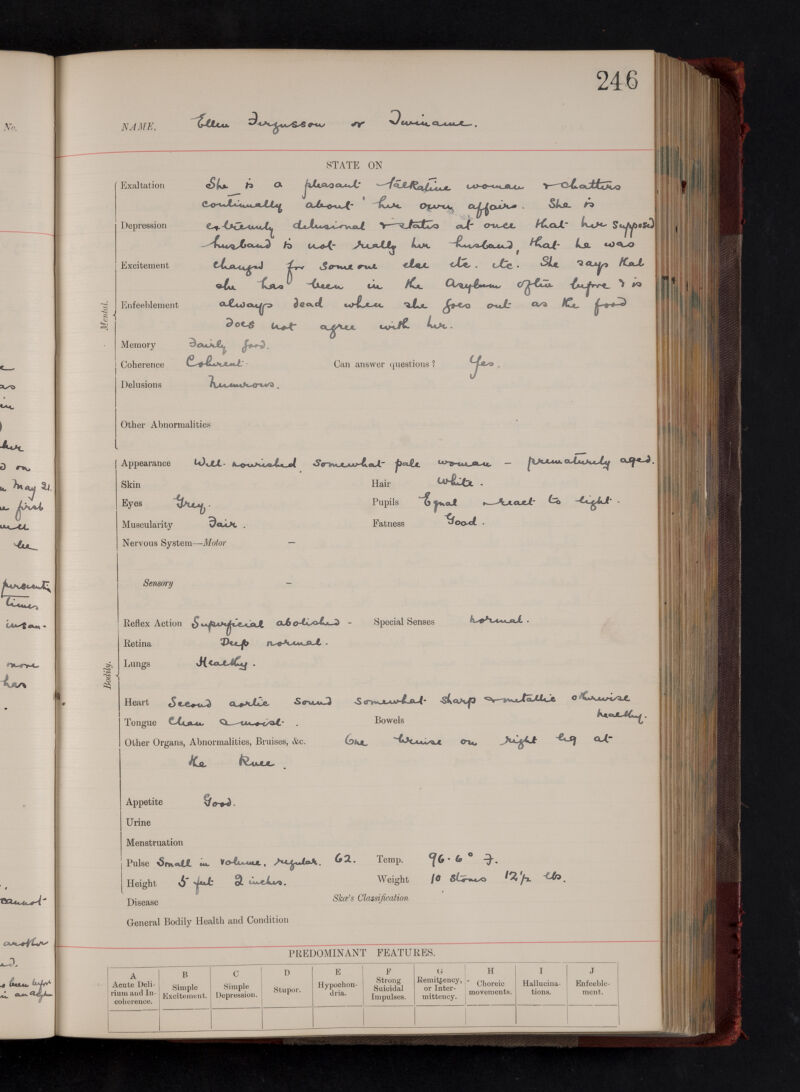 246
No.
NAME. Ellen Fergusson or Twiname.
STATE ON
Exaltation She is a pleasant talkative woman & chatters
continually about her own affairs. She is
Depression extremely delusional & states at once that her supposed
husband is not really her husband, that he was
Excitement changed for some one else etc. etc. She says that
she has been in the Asylum often before & is
Enfeeblement always dead when she goes out as the food
does not agree with her.
Mental.
Memory Fairly good.
Coherence Coherent. Can answer questions? Yes.
Delusions Numerous.
Other Abnormalities
Appearance Well nourished somewhat pale woman – prematurely aged.
Skin Hair White.
Eyes Grey. Pupils Equal react to light.
Muscularity Fair. Fatness Good.
Nervous System—Motor –
Sensory –
Reflex Action Superficial abolished - Special Senses Normal.
Retina Deep normal.
Bodily.
Lungs Healthy.
Heart Second aortic sound somewhat sharp & metallic otherwise
healthy.
Tongue Clean & moist. Bowels
Other Organs, Abnormalities, Bruises, &c. One bruise on right leg at
the Knee.
Appetite Good.
Urine
Menstruation
Pulse Small in volume, regular. 62. Temp. 96.6° F.
Height 5 feet 2 inches. Weight 10 stones 12½ lbs.
Disease Skæ's Classification
General Bodily Health and Condition
PREDOMINANT FEATURES.
A Acute Delirium and Incoherence.
B Simple Excitement.
C Simple Depression.
D Stupor.
E Hypochondria.
F Strong Suicidal Impulses.
G Remittency, or Intermittency.
H Choreic movements.
I Hallucinations.
J Enfeeblement.